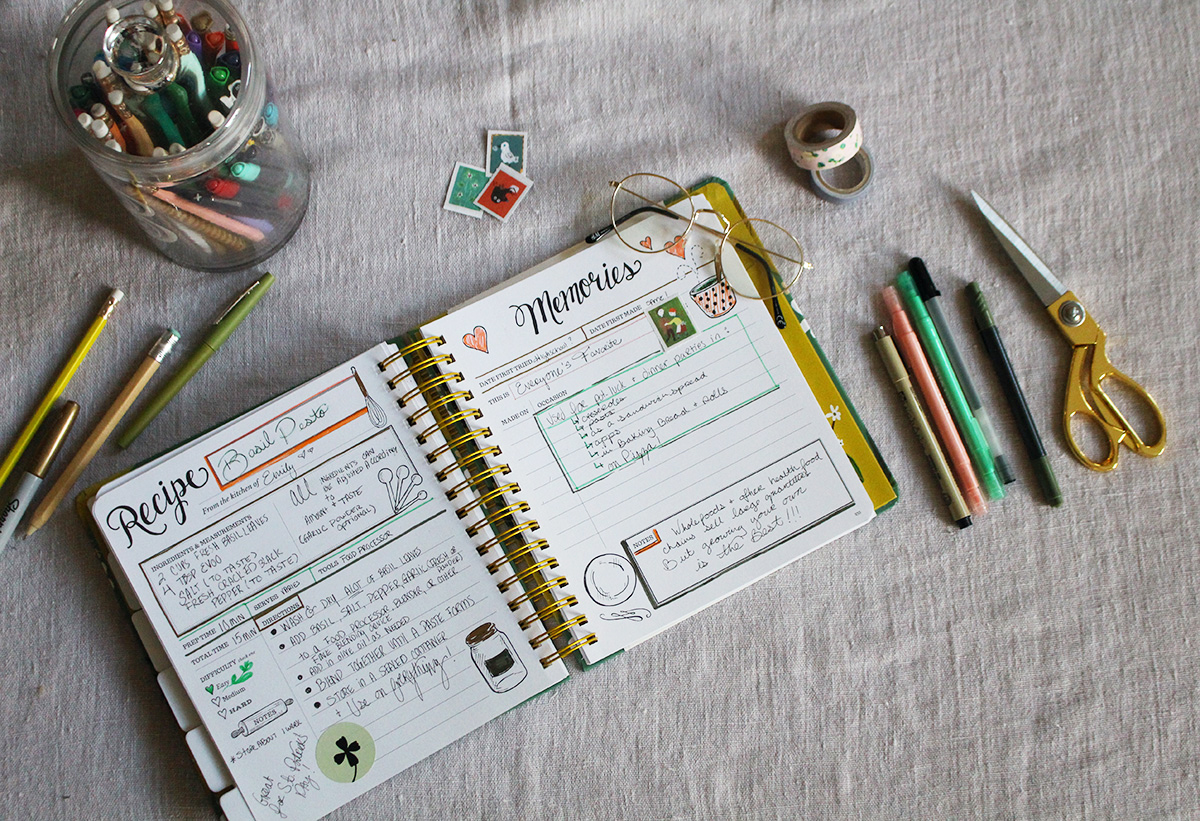 Recipe
Basil Pesto
From the kitchen of Emily
INGREDIENTS & MEASUREMENTS
2 CUPS FRESH BASIL LEAVES
4 TBSP EVOO
SALT (TO TASTE)
FRESH CRACKED BLACK
PEPPER (TO TASTE)
all INGREDIENTS CAN
BE ADJUSTED ACCORDING
TO
AMOUNT + TASTE
(GARLIC POWDER
OPTIONAL)
PREP TIME 10 MIN
SERVES VARIES
TOOLS FOOD PROCESSOR
TOTAL TIME 15 MIN
DIRECTIONS
WASH & DRY ALOT OF BASIL LEAVES
ADD BASIL, SALT, PEPPER, GARLIC (FRESH OR
POWDER)
TO A FOOD PROCESSOR, BLENDER, OR OTHER
FINE BLENDING DEVICE
ADD IN OLIVE OIL AS NEEDED
BLEND TOGETHER UNTIL A PASTE FORMS
STORE IN A SEALED CONTAINER
+ Use on Everything!
DIFFICULTY
Easy
Medium
HARD
NOTES
*STORE ABOUT 1 WEEK
Great
for St. Patrick's
Day!
Memories
DATE FIRST TRIED highschool?
DATE FIRST MADE same!
THIS IS Everyone's Favorite
MADE ON
OCCASION
Used for Pot luck + dinner parties in:
↳ casseroles
↳ pasta
↳ as a sandwich spread
↳ apps
↳ in Baking Bread + Rolls
↳ on Pizza!
NOTES
Whole foods + other health food
chains sell large quantities
But growing your own
is the Best!!!